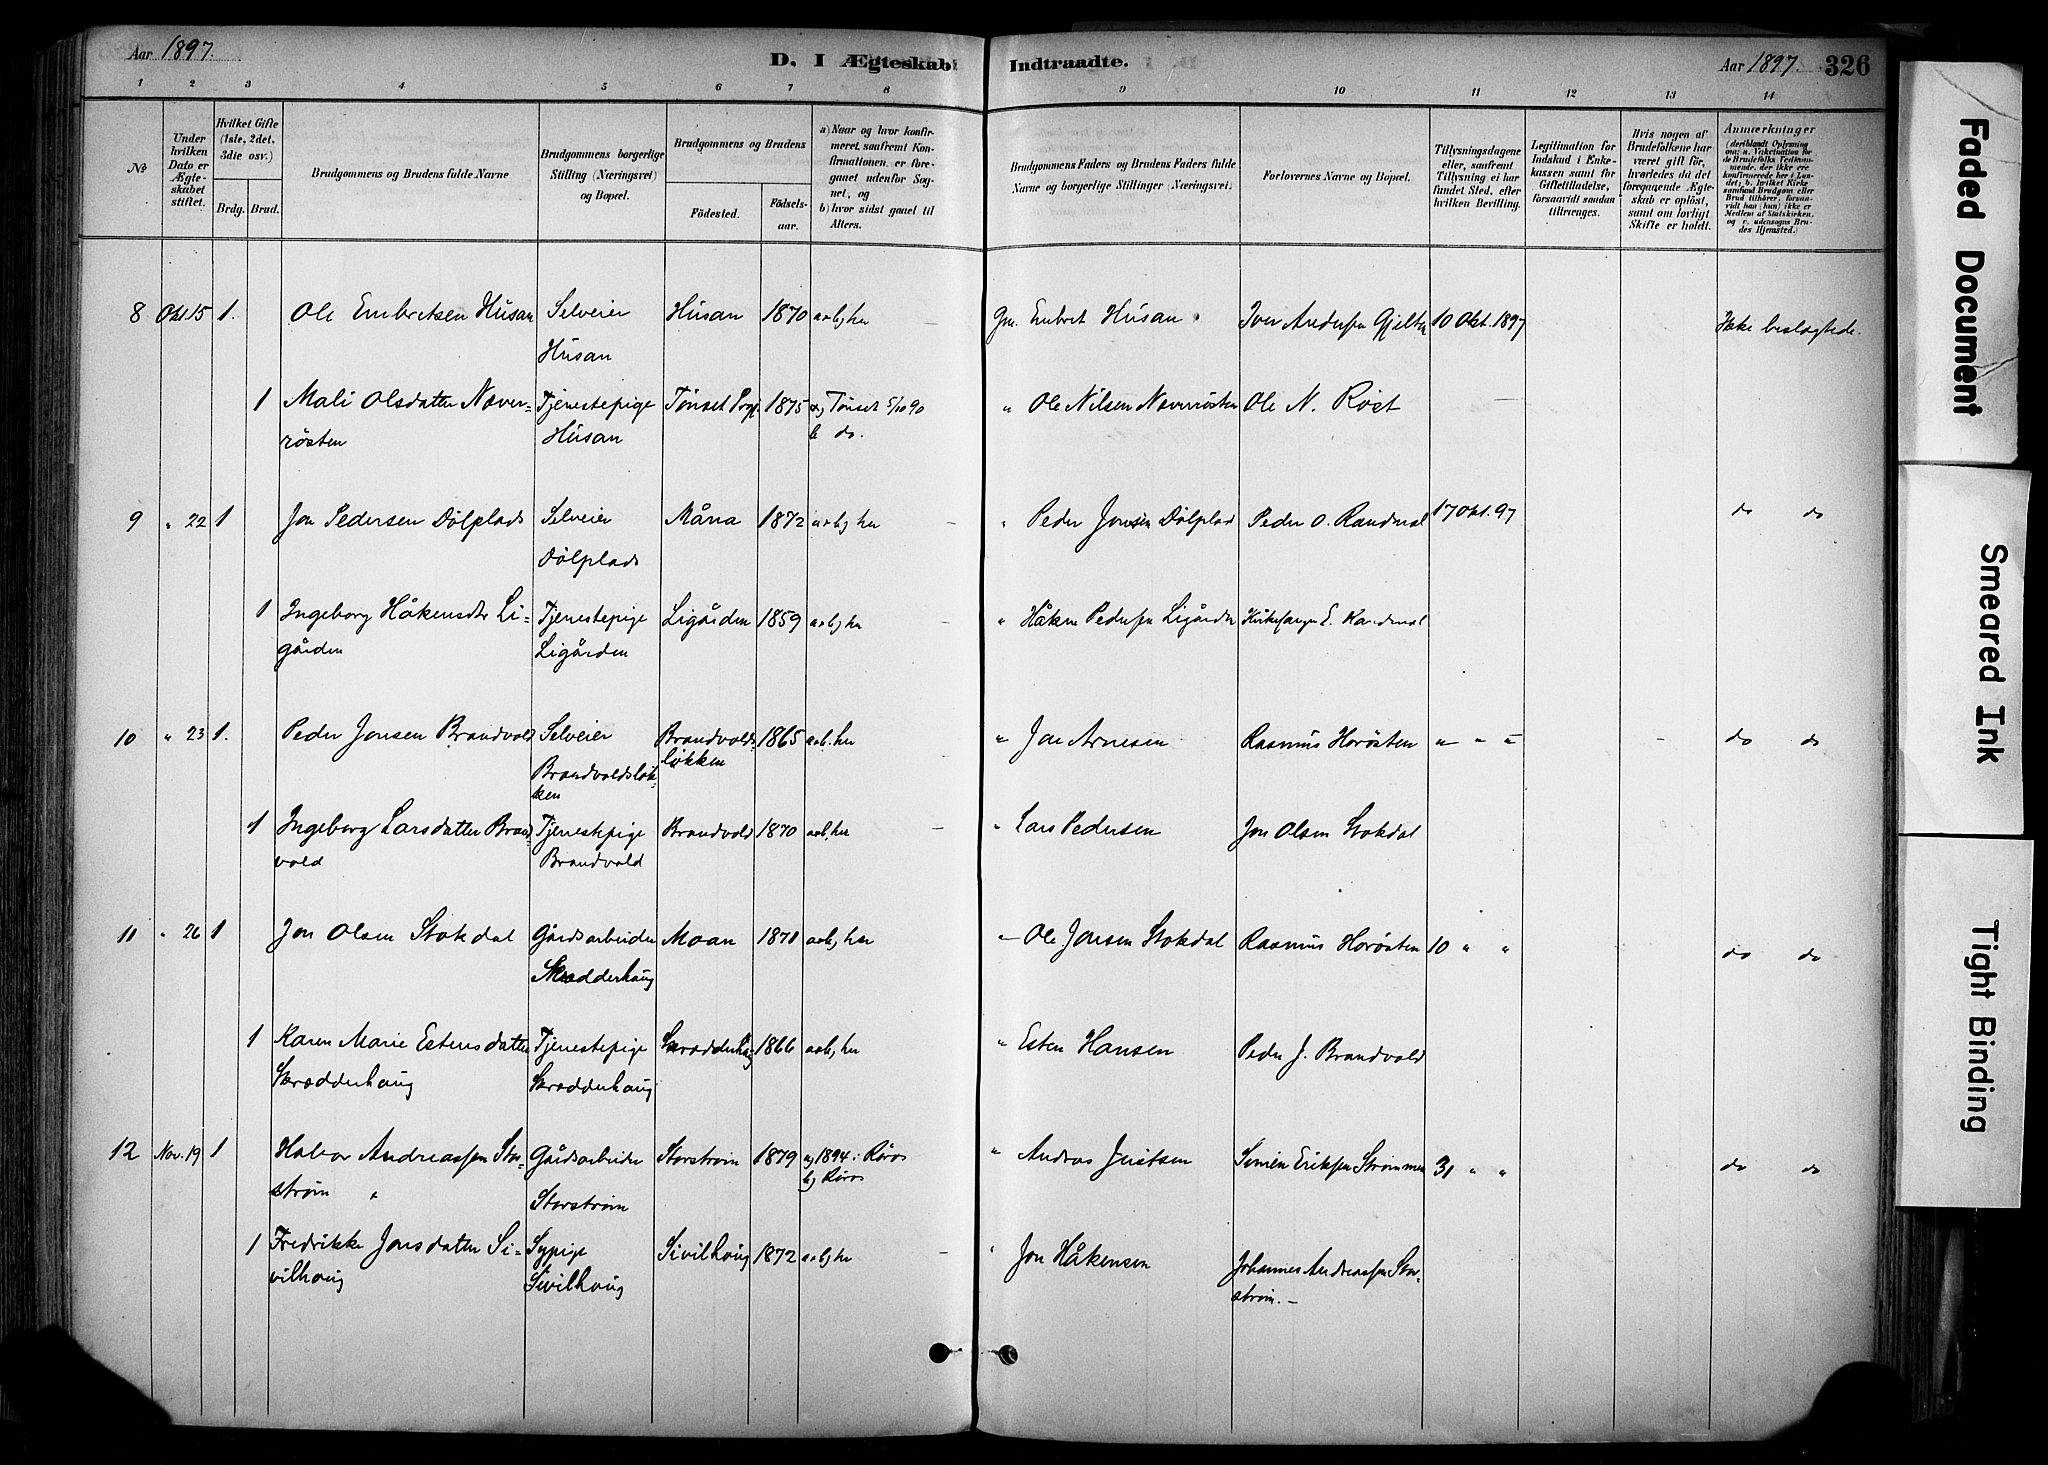 Aar 1897.
D. I Ægteskab
Indtraadte.
Aar 1897. 326
1 2 3 4 5 6 7 8 9 10 11 12 13 14
№
Under hvilken Dato er Ægteskabet stiftet.
Hvilket Gifte (1ste, 2det, 3die osv.)
Brdg. Brud.
Brudgommens og Brudens fulde Navne
Brudgommens borgerlige Stilling (Næringsvei) og Bopæl.
Brudgommens og Brudens
Födested. Födselsaar.
a) Naar og hvor konfirmeret, saafremt Konfirmationen er foregaaet udenfor Sognet, og
b) hvor sidst gaaet til Alters.
Brudgommens Faders og Brudens Faders fulde Navne og borgerlige Stillinger (Næringsvei)
Forlovernes Navne og Bopæl.
Tillysningsdagene eller, saafremt Tillysning ei har fundet Sted, efter hvilken Bevilling.
Legitimation for Indskud i Enkekassen samt for Giftetilladelse, forsaavidt saadan tiltrænges.
Hvis nogen af Brudefolkene har været gift för, hvorledes da det foregaaende Ægteskab er oplöst, samt om lovligt Skifte er holdt.
Anmærkninger
8 Okt. 15 1. Ole Embretsen Husan Selveier Husan 1870 a+b, her Gm. Embret Husan Iver Andersen Gjelten 10 Okt. 1897 Ikke beslægtede.
Husan
1 Mali Olsdatter Næver- Tjenestepige Tönset Prgj. 1875 a, Tönset 5/10 90 " Ole Nilsen Næverrösten Ole N. Röst
rösten Husan b do.
9 " 22 1 Jon Pedersen Dölplads Selveier Måna 1872 a+b, her " Peder Jonsen Dölplads Peder O. Randmæl 17 Okt. 97 do do
Dölplads
1 Ingeborg Håkensdtr Li- Tjenestepige Ligården 1859 a+b, her " Håken Pedersen Ligården Kirkesanger E. Randmæl
gården Ligården
10 " 23 1. Peder Jonsen Brandvold Selveier Brandvolds- 1865 a+b. her " Jon Arnesen Rasmus Horösten " " " do do
Brandvoldsløk- løkken
ken
1 Ingeborg Larsdatter Brand- Tjenestepige Brandvold 1870 a+b, her " Lars Pedersen Jon Olsen Stokdal
vold Brandvold
11 " 26 1 Jon Olsen Stokdal Gårdsarbeider Moan 1871 a+b, her " Ole Jonsen Stokdal Rasmus Horösten 10 " " do do
Skrædderhaug
1 Karen Marie Estensdatter Tjenestepige Skrædderhaug 1866 a+b, her " Esten Hansen Peder J. Brandvold
Skrædderhaug Skrædderhaug
12 Nov. 19 1 Halvor Andreassen Stor- Gårdsarbeider Storstrøm 1879 a, 1894 i Røros " Andreas Justsen Simen Eriksen Strømmen 31 " " do do
strøm " Storstrøm b, Røros
1 Fredrikke Jonsdatter Si- Sypige Sivilhaug 1872 a+b, her " Jon Håkensen Johannes Andreassen Stor-
vilhaug Sivilhaug strøm. —
Faded Document
Smeared Ink
Tight Binding